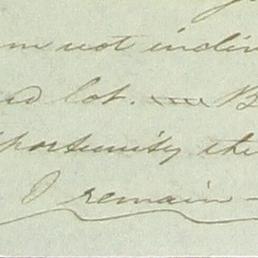 m not indin
d lot. B
portunity the
I remain -